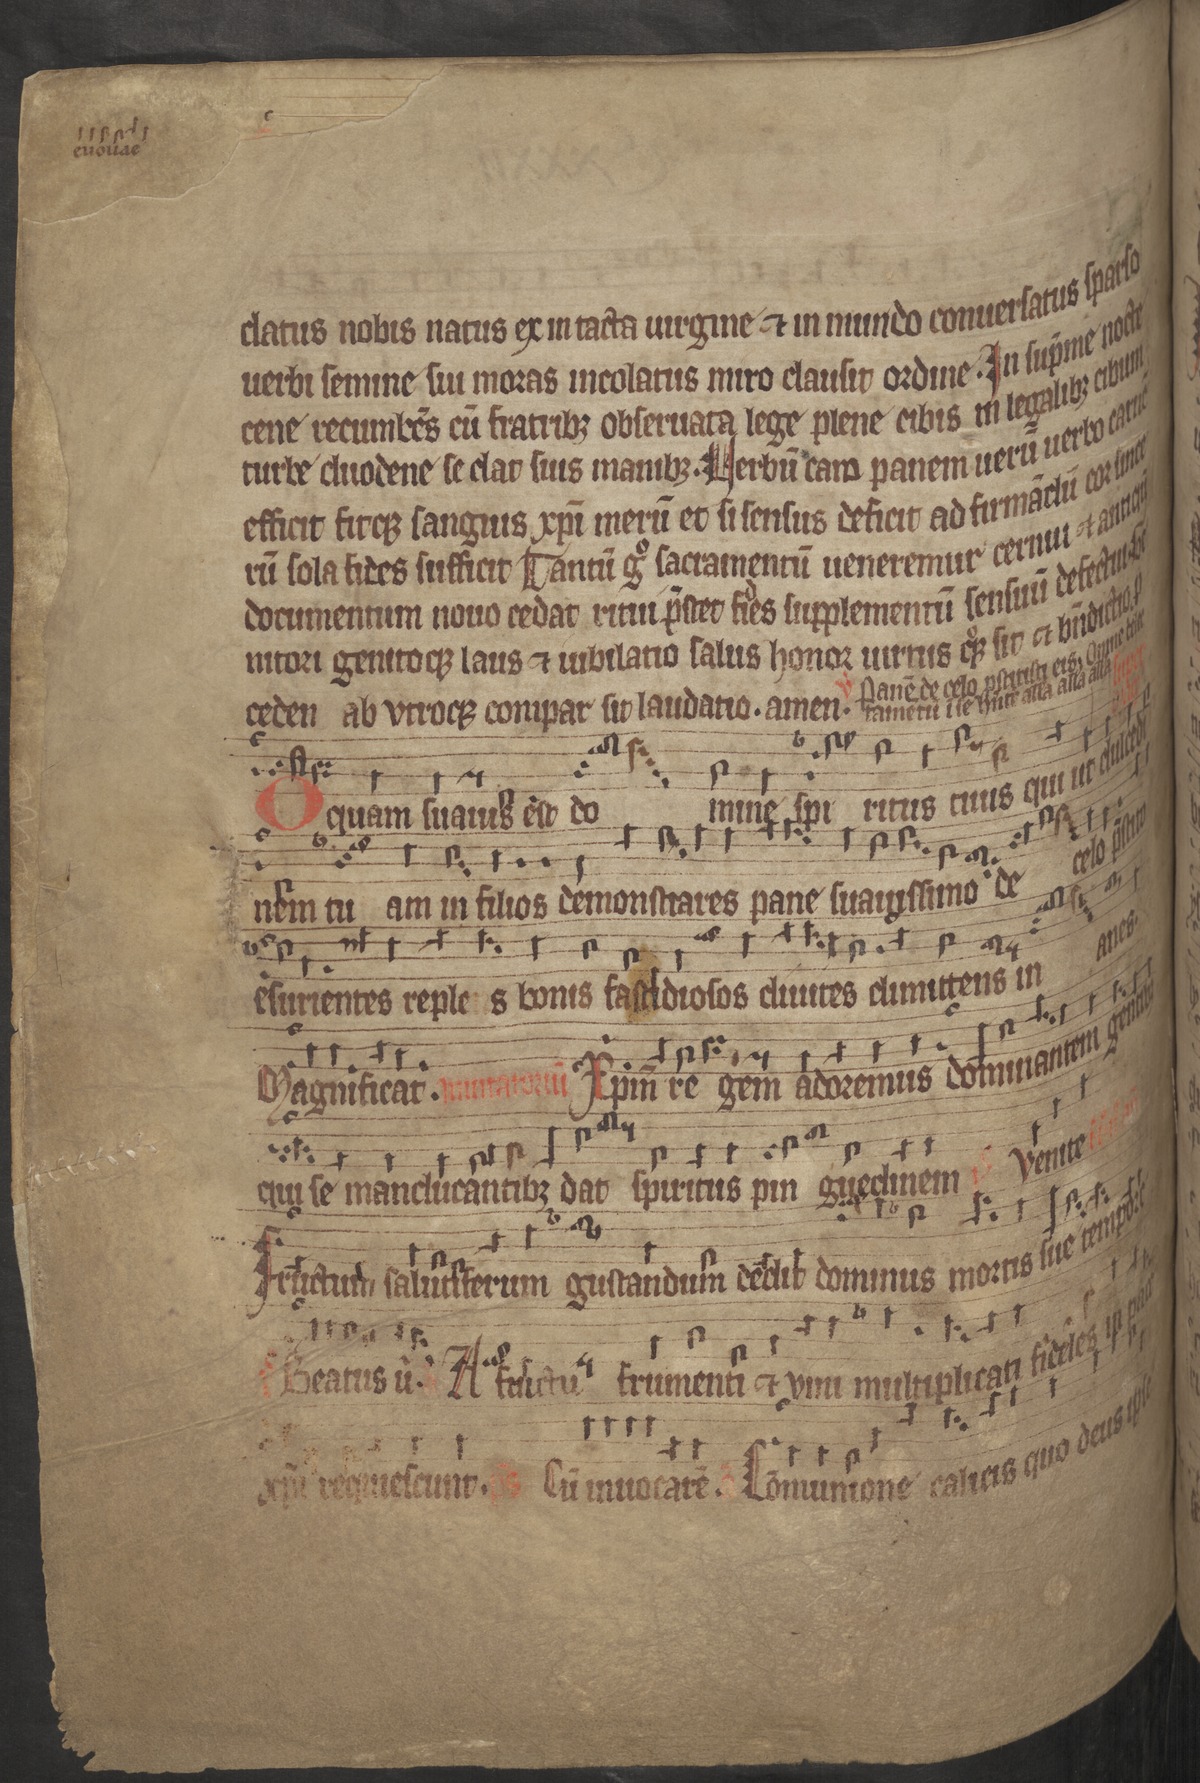 euouae
datus nobis natus ex intacta uirgine et in mundo conuersatus sparso
uerbi semine sui moras incolatus miro clausit ordine. In sup̄me nocte
cene recumbēs cū fratribꝫ obseruata lege plene cibis in legalibꝫ cibum
turbe duodene se dat suis manibꝫ. Uerbū caro panem uerū uerbo carnē
efficit fitqꝫ sanguis xp̄i merū et si sensus deficit ad firmādū cor since
rū sola fides sufficit Tantū gͦ sacramentū ueneremur cernui et anticū
documentum nouo cedat ritui p̄stet fides supplementū sensuū defectui. Ge
nitori genitoqꝫ laus et iubilatio salus honor uirtus qͦqꝫ sit et bn̄dictio. p̄
ceden ab vtroqꝫ compar sit laudatio. amen. v̄ Panē de celo pstitisti eis. Omne
O quam suauis ēst do mine spi ritus tuus qui ut dulcedi
nēm tu am in filios demonstrares pane suauissimo de celo p̄stito
ēsurientes reple s bonis fastidiosos diuites dimittens in anes.
Magnificat. inuitatoriū Xp̄m re gem adoremus dominantem gentibꝫ
qui se manducantibꝫ dat spiritus pin guedinem ps̄ Venite
Fructum salutiferum gustandum dedit dominus mortis sue tempore
Beatus ū. A fructu frumenti et vini multiplicati fideles in pace
xp̄i requiescunt. ps̄ Cū inuocarē. Cōmunione calicis quo deus ipse